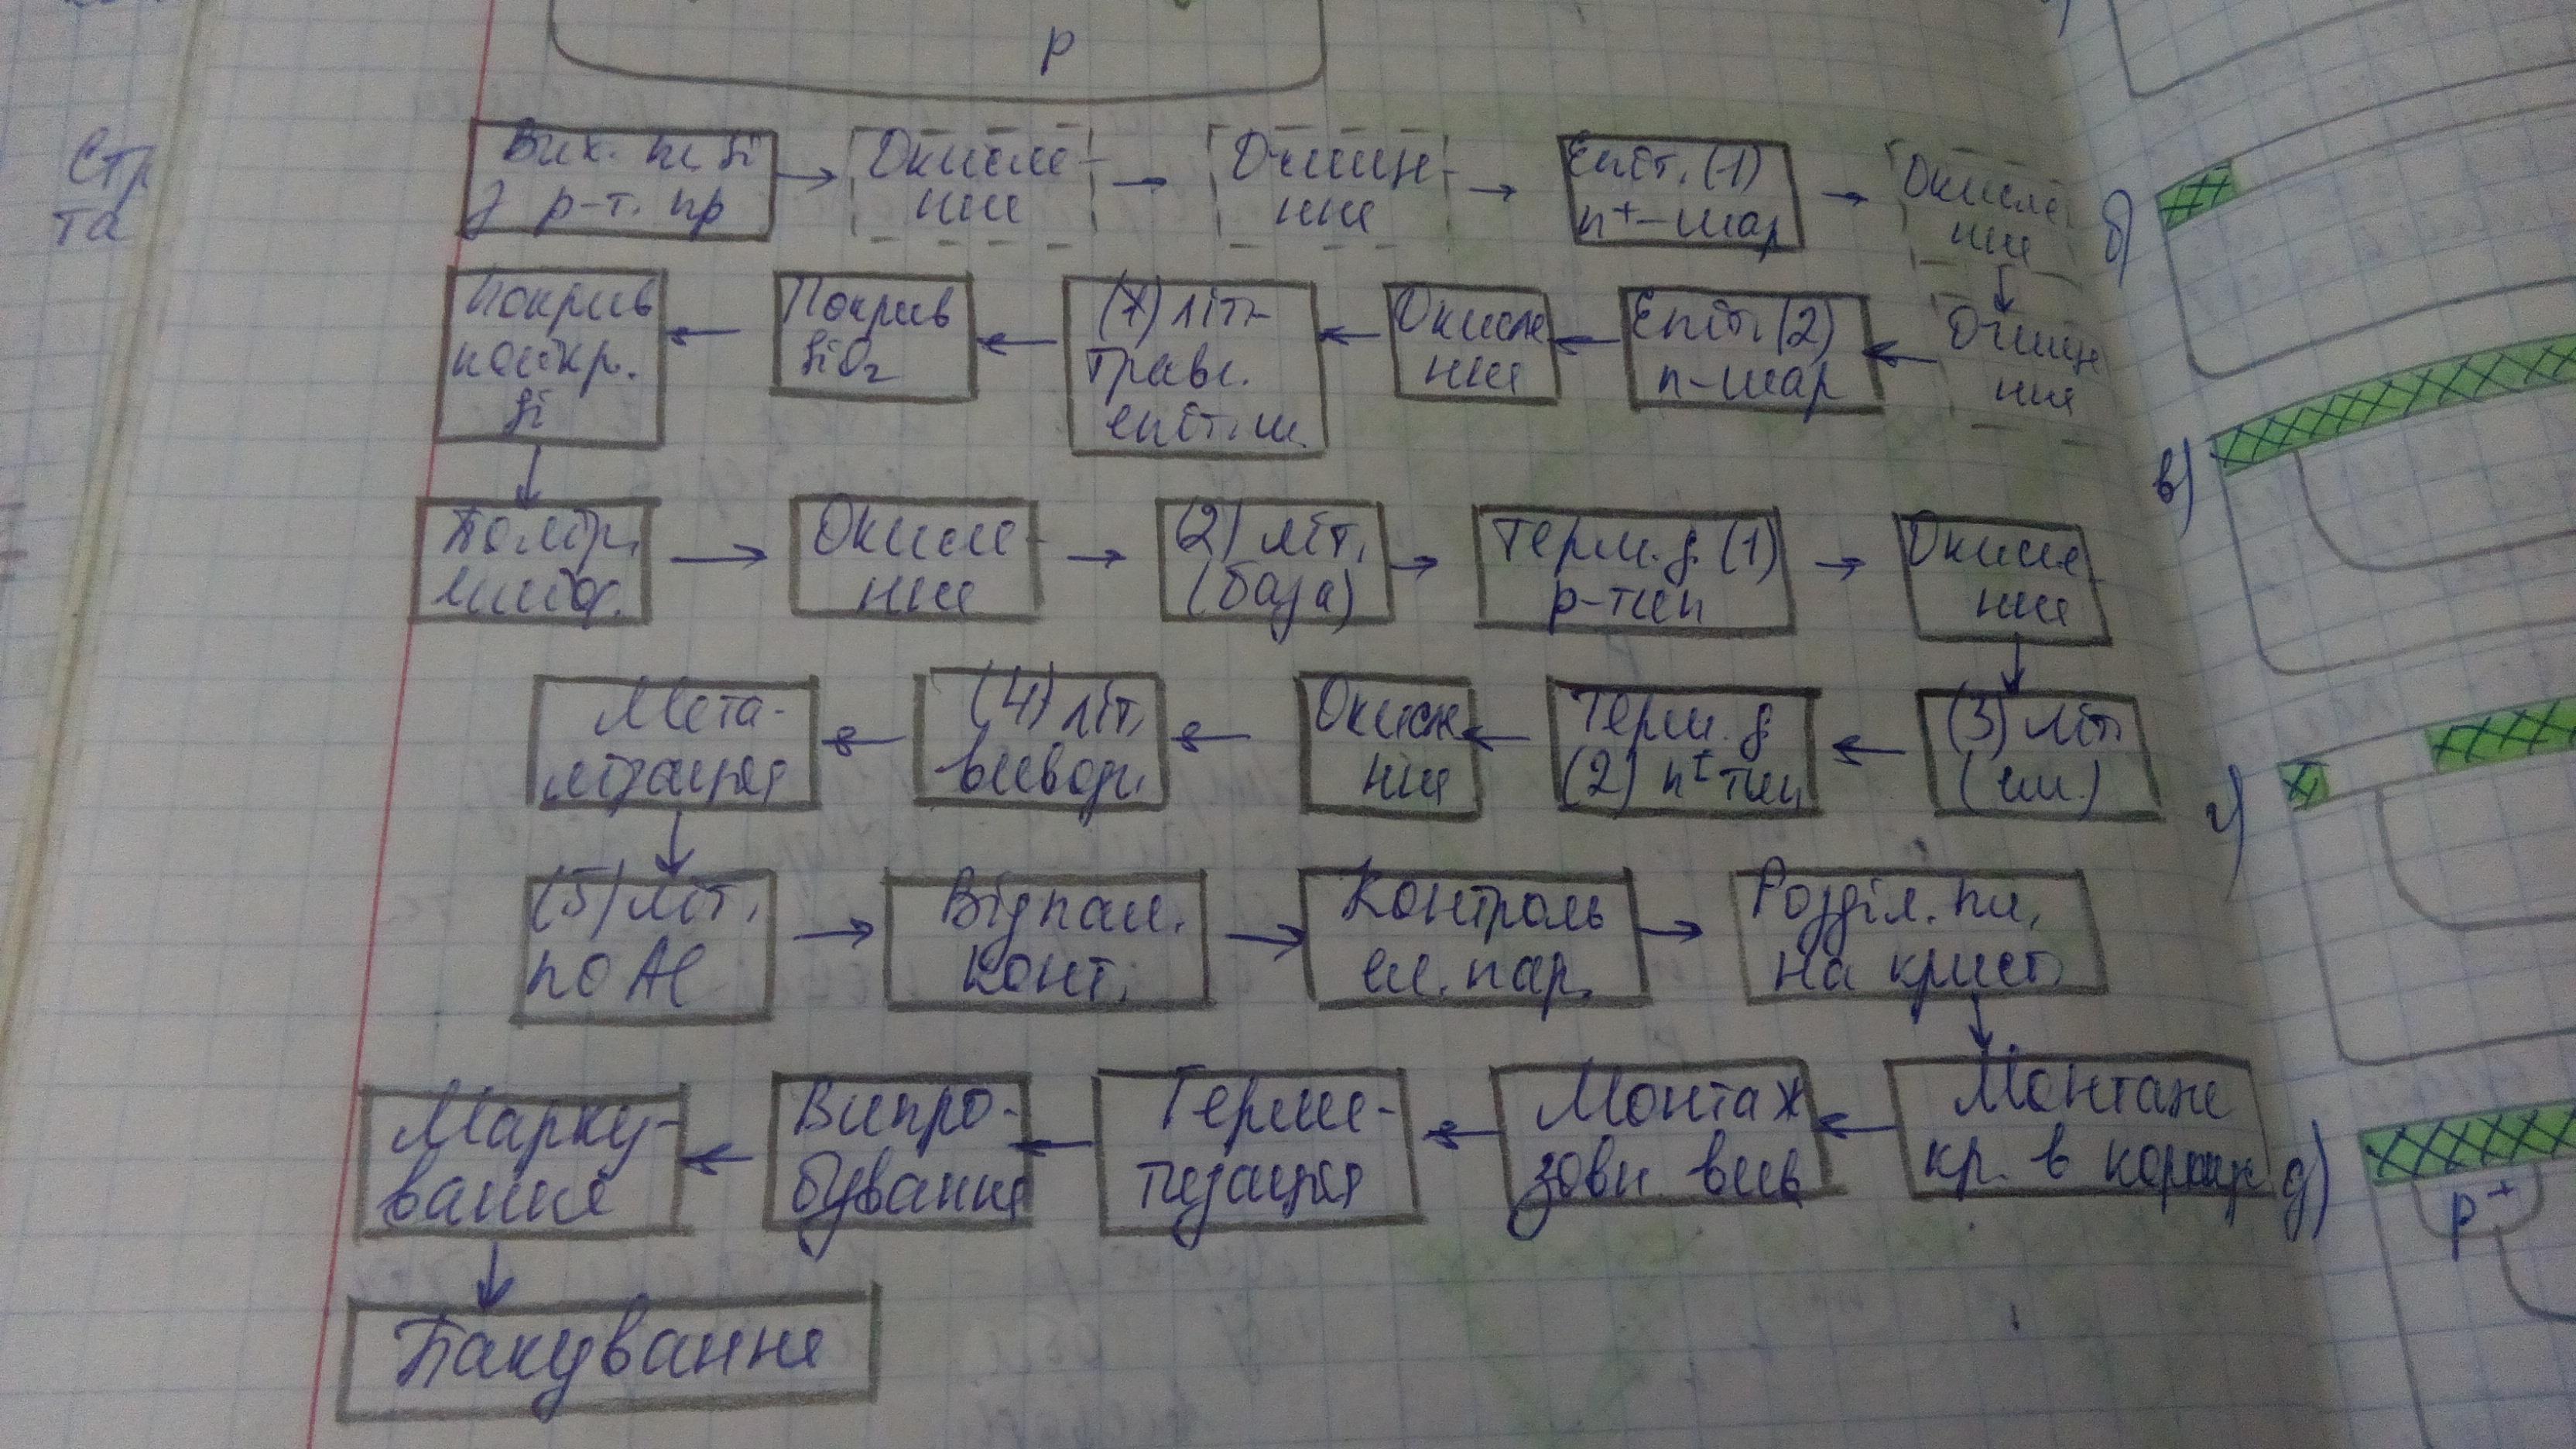 р
Стр
та
Вих. пл. Si
з р-т. пр
Окисле-
ння
Очищен-
ння
Епіт. (1)
n⁺-шар
Окисле
ння
Очище
ння
Епіт. (2)
n-шар
Окисле
ння
(1) літ.
Травл.
епіт. ш.
Покрив
SiO₂
Покрив
полікр.
Si
Полір.
шліф.
Окисле-
ння
(2) літ.
(база)
Терм. д. (1)
р-тип
Окисле-
ння
(3) літ.
(ем.)
Терм. д
(2) n⁺тип
Окисле
ння
(4) літ.
вивод.
Мета-
лізація
(5) літ.
по Al
Відпал.
конт.
Контроль
ел. пар.
Розділ. пл.
на крист.
Монтаж
кр. в корпус
Монтаж
зовн. вив.
Герме-
тизація
Випро-
бування
Марку-
вання
Пакування
б)
в)
г)
д)
р⁺